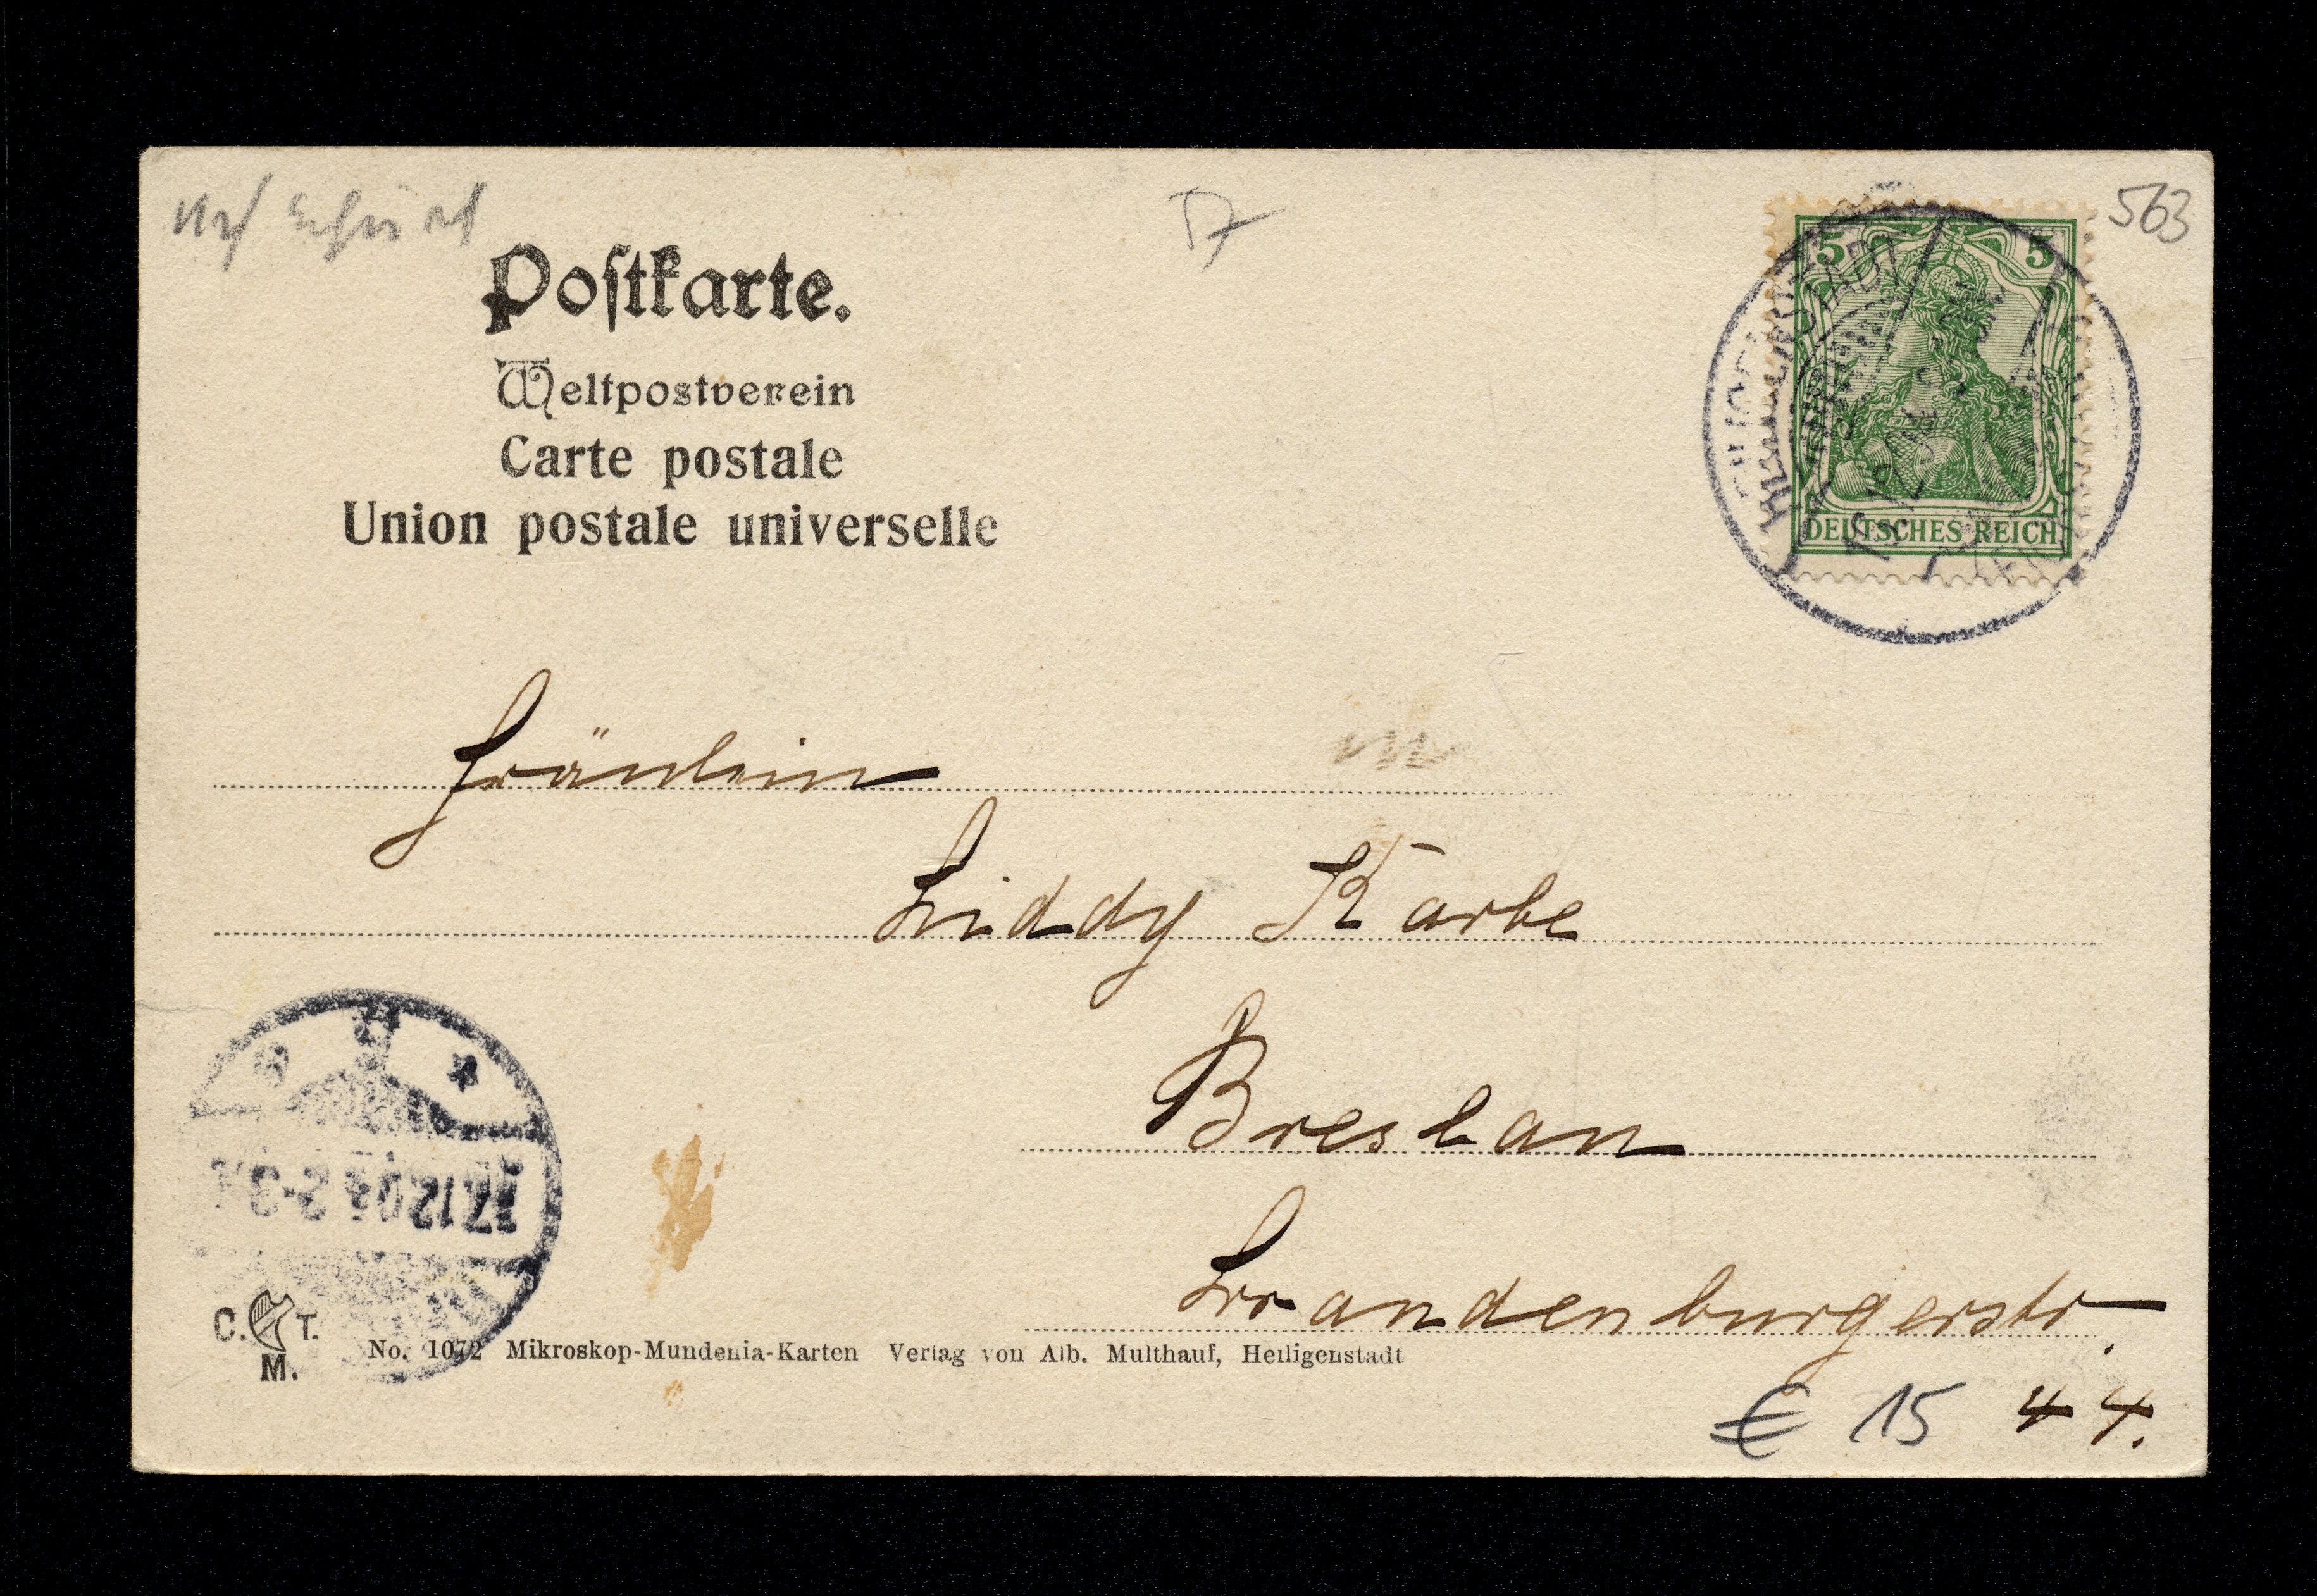 57
563
Postkarte.
Weltpostverein
Carte postale
Union postale universelle
5 5
DEUTSCHES REICH
Fräulein
Liddy Karbe
Breslau
Brandenburgerstr.
44.
€ 15
C. T.
M.
No. 1072 Mikroskop-Mundenia-Karten Verlag von Alb. Multhauf, Heiligenstadt